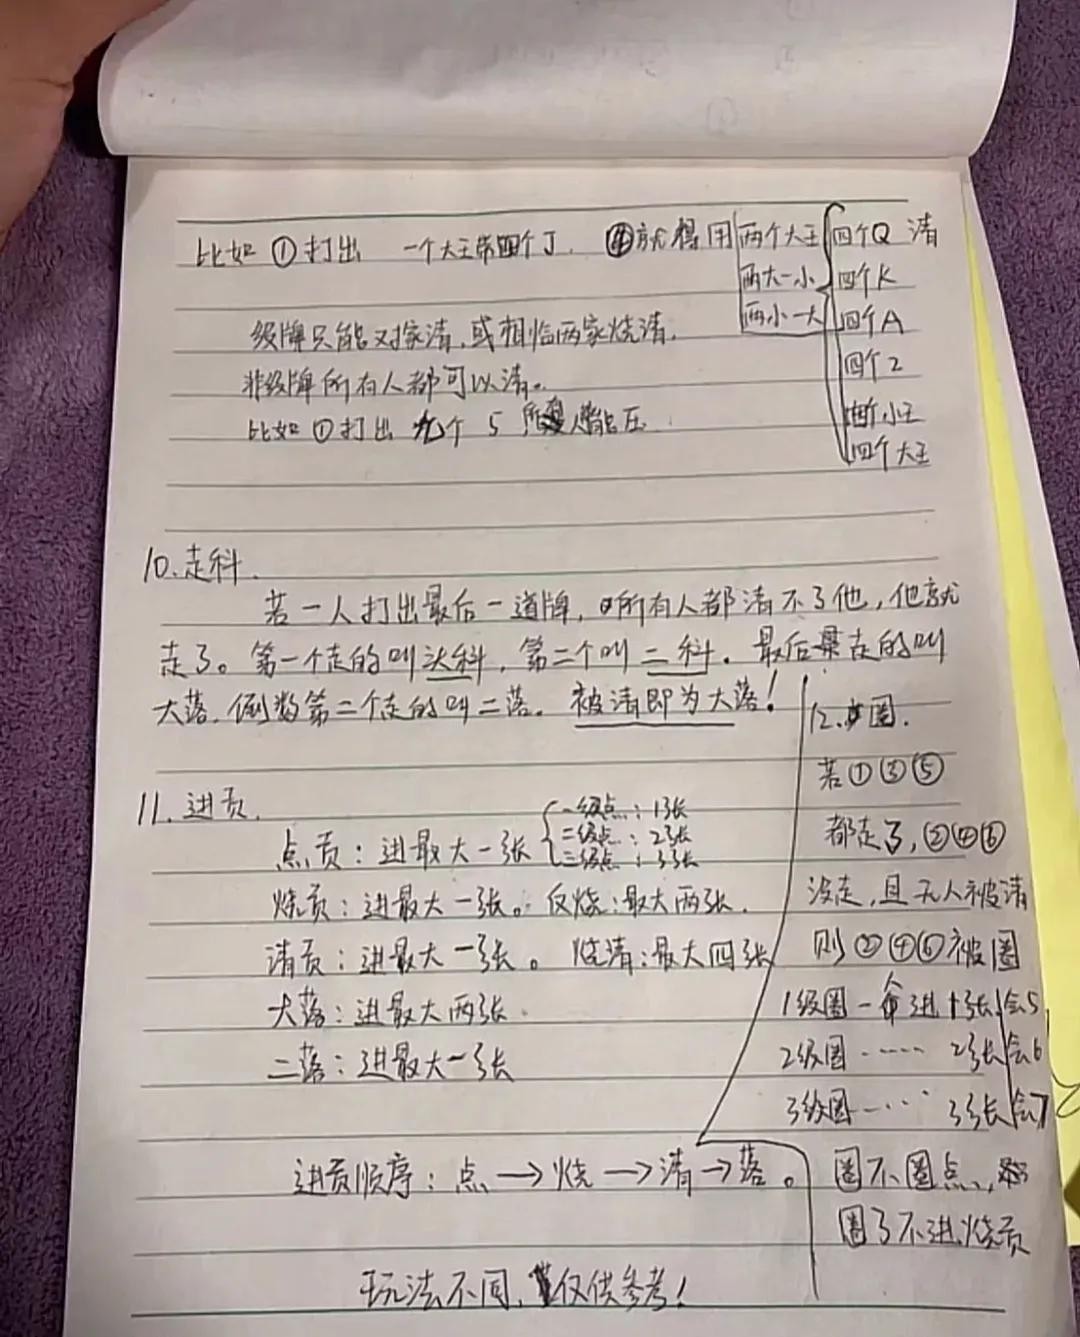 比如①打出 一个大王带四个J. ④就得用 两个大王 四个Q 清
两大一小 四个K
两小一大 四个A
四个2
四个小王
四个大王
级牌只能对家清,或相临两家烧清.
非级牌所有人都可以清。
比如①打出 九个5 所有人都能压
10.走科.
若一人打出最后一道牌,所有人都清不了他,他就
走了。第一个走的叫头科,第二个叫二科.最后走的叫
大落.倒数第二个走的叫二落.被清即为大落!
11.进贡.
点贡:进最大一张 一级点:1张
二级点:2张
三级点:3张
烧贡:进最大一张。反烧:最大两张.
清贡:进最大一张。烧清:最大四张
大落:进最大两张.
二落:进最大一张
进贡顺序:点→烧→清→落。
玩法不同,仅供参考!
12.圈.
若①③⑤
都走了,②④⑥
没走,且无人被清
则②④⑥被圈
1级圈一命进1张 会5
2级圈······2张 会6
3级圈一···3张 会7
圈不圈点,
圈了不进烧贡